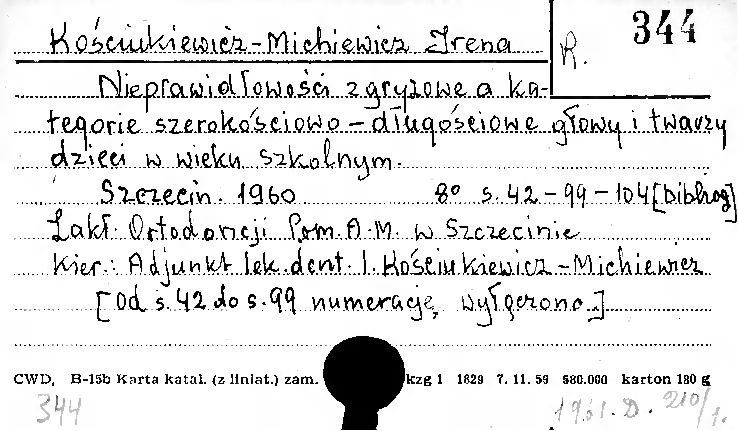 R. 344
Kościukiewicz-Michiewicz Irena
Nieprawidłowości zgryzowe a ka-
tegorie szerokościowo-długościowe głowy i twarzy
dzieci w wieku szkolnym.
Szczecin. 1960 8° s. 42-99-104 [bibliog]
Zakł. Ortodoncji Pom. A.M. w Szczecinie
Kier.: Adjunkt lek. dent. I. Kościukiewicz-Michiewicz
[Od s. 42 do s. 99 numerację wyłączono.]
CWD, B-15b Karta katal. (z liniat.) zam. kzg 1 1829 7. 11. 59 580.000 karton 180 g
344 1961. D. 210/1.